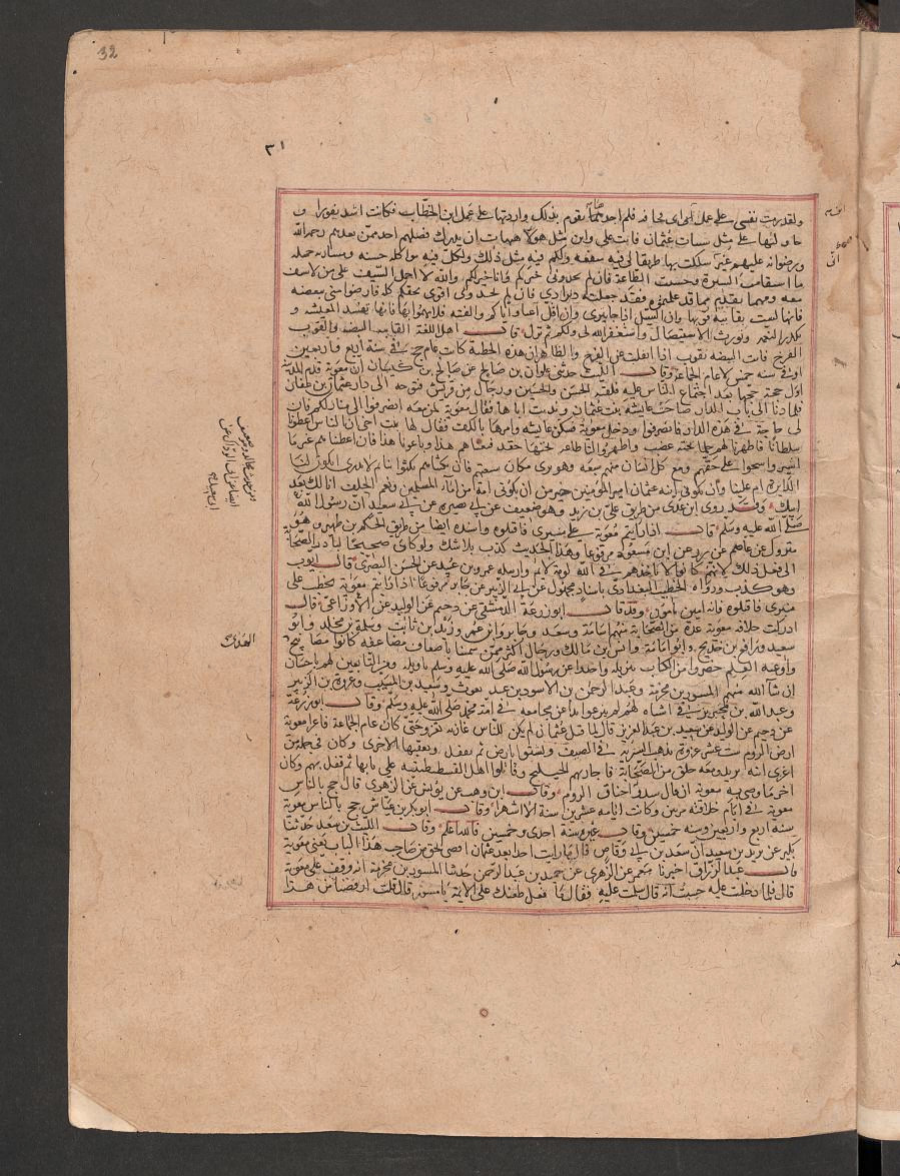 32
٣١
ولقد رمت نفسي على عمل ابن ابي قحافة فلم اجدها تقوم بذلك واردتها على عمل ابن الخطاب فكانت اشد نفورا و
حاولتها على مثل سنيات عثمان فابت علي واين مثل هولاء هيهات ان يدرك فضلهم احد ممن بعدهم رحمة الله
ورضوانه عليهم غير اني سلكت بها طريقا لي فيه منفعة ولكم فيه مثل ذلك ولكل فيه مواكلة حسنة ومشاربة جميلة
ما استقامت السيرة وحسنت الطاعة فان لم تجدوني خيركم فانا خير لكم والله لا احمل السيف على من لا سيف
معه ومهما تقدم مما قد علمتموه فقد جعلته دبر اذني وان لم تجدوني اقوم بحقكم كله فارضوا مني ببعضه
فانها ليست بقائبة قوبها وان السيل اذا جا يبرى وان قل اغنى واياكم والفتنة فلا تهموا بها فانها تفسد المعيشة و
تكدر النعمة وتورث الاستيصال واستغفر الله لي ولكم ثم نزل قال اهل اللغة القايبة البيضة والقوب
الفرخ قابت البيضة تقوب اذا انفلقت عن الفرخ والظاهر ان هذه الخطبة كانت عام حج في سنة اربع واربعين
او في سنة خمسين لا عام الجماعة وقال الليث حدثني علوان بن صالح عن صالح بن كيسان ان معوية قدم المدينة
اول حجة حجها بعد اجتماع الناس عليه فلقيه الحسن والحسين ورجال من قريش فتوجه الى دار عثمان بن عفان
فلما دنا الى باب الدار صاحت عايشة بنت عثمان وندبت اباها فقال معوية لمن معه انصرفوا الى منازلكم فان
لي حاجة في هذه الدار فانصرفوا ودخل معوية فسكن عايشة وامرها بالكف وقال لها يا بنت اخي ان الناس اعطونا
سلطانا فاظهرنا لهم حلما تحته غضب واظهروا لنا طاعة تحتها حقد فبعناهم هذا وباعونا هذا فان اعطيناهم غير ما
اشتروا شحوا على حقهم ومع كل انسان منهم شيعة وهو يرى مكان شيعته فان نكثناهم نكثوا بنا ثم لا ندري اتكون لنا
الدايرة ام علينا وان تكوني ابنة عثمان امير المؤمنين خير من ان تكوني امة من اماء المسلمين ونعم الخلف انا لك بعد
ابيك وقد روى ابن عدي من طريق علي بن زيد وهو ضعيف عن ابي نضرة عن ابي سعيد ان رسول الله
صلى الله عليه وسلم قال اذا رايتم معوية على منبري فاقتلوه واسنده ايضا من طريق الحكم بن ظهير وهو
متروك عن عاصم عن زر عن ابن مسعود مرفوعا وهذا الحديث كذب بلا شك ولو كان صحيحا لبادر الصحابة
الى فعل ذلك لانهم كانوا لا تاخذهم في الله لومة لايم وارسله عمرو بن عبيد عن الحسن البصري قال ايوب
وهو كذب ورواه الخطيب البغدادي باسناد مجهول عن ابي الزبير عن جابر مرفوعا اذا رايتم معوية يخطب على
منبري فاقبلوه فانه امين مامون وقد قال ابو زرعة الدمشقي عن دحيم عن الوليد عن الاوزاعي قال
ادركت خلافة معوية عدة من الصحابة منهم اسامة وسعد وجابر وابن عمر وزيد بن ثابت وسلمة بن مخلد وابو
سعيد ورافع بن خديج وابو امامة وانس بن مالك ورجال اكثر ممن سمينا باضعاف مضاعفة كانوا مصابيح
واوعية العلم حضروا من الكتاب تنزيله واخذوا عن رسول الله صلى الله عليه وسلم تاويله ومن التابعين لهم باحسان
ان شاء الله منهم المسور بن مخرمة وعبد الرحمن بن الاسود بن عبد يغوث وسعيد بن المسيب وعروة بن الزبير
وعبد الله بن محيريز في اشباه لهم لم ينزعوا يدا عن مجامعة في امة محمد صلى الله عليه وسلم وقال ابو زرعة
عن دحيم عن الوليد عن سعيد بن عبد العزيز قال لما قتل عثمان لم يكن للناس غازية تغزو حتى كان عام الجماعة فاغزا معوية
ارض الروم ست عشرة غزوة تذهب السرية في الصيف ويشتوا بارض الروم ثم تقفل وتعقبها الاخرى وكان في جملة من
اغزى ابنه يزيد ومعه خلق من الصحابة فجاز بهم الخليج وقاتلوا اهل القسطنطينية على بابها ثم قفل بهم وكان
اخر ما وصى به معوية ان قال شد خناق الروم وقال ابن وهب عن يونس عن الزهري قال حج بالناس
معوية في ايام خلافته مرتين وكانت ايامه عشرين سنة الا اشهرا وقال ابو بكر بن عياش حج بالناس معوية
سنة اربع واربعين وسنة خمسين وقال غيره سنة احدى وخمسين فالله اعلم وقال الليث بن سعد حدثنا
بكير عن بشر بن سعيد ان سعد بن ابي وقاص قال ما رايت احدا بعد عثمان اقضى بحق من صاحب هذا الباب يعني معوية
قال عبد الرزاق اخبرنا معمر عن الزهري عن حميد بن عبد الرحمن حدثنا المسور بن مخرمة انه وفد على معوية
قال فلما دخلت عليه حسبت انه قال سلمت عليه فقال ما فعل طعنك على الايمة يا مسور قال قلت ارفضنا من هذا